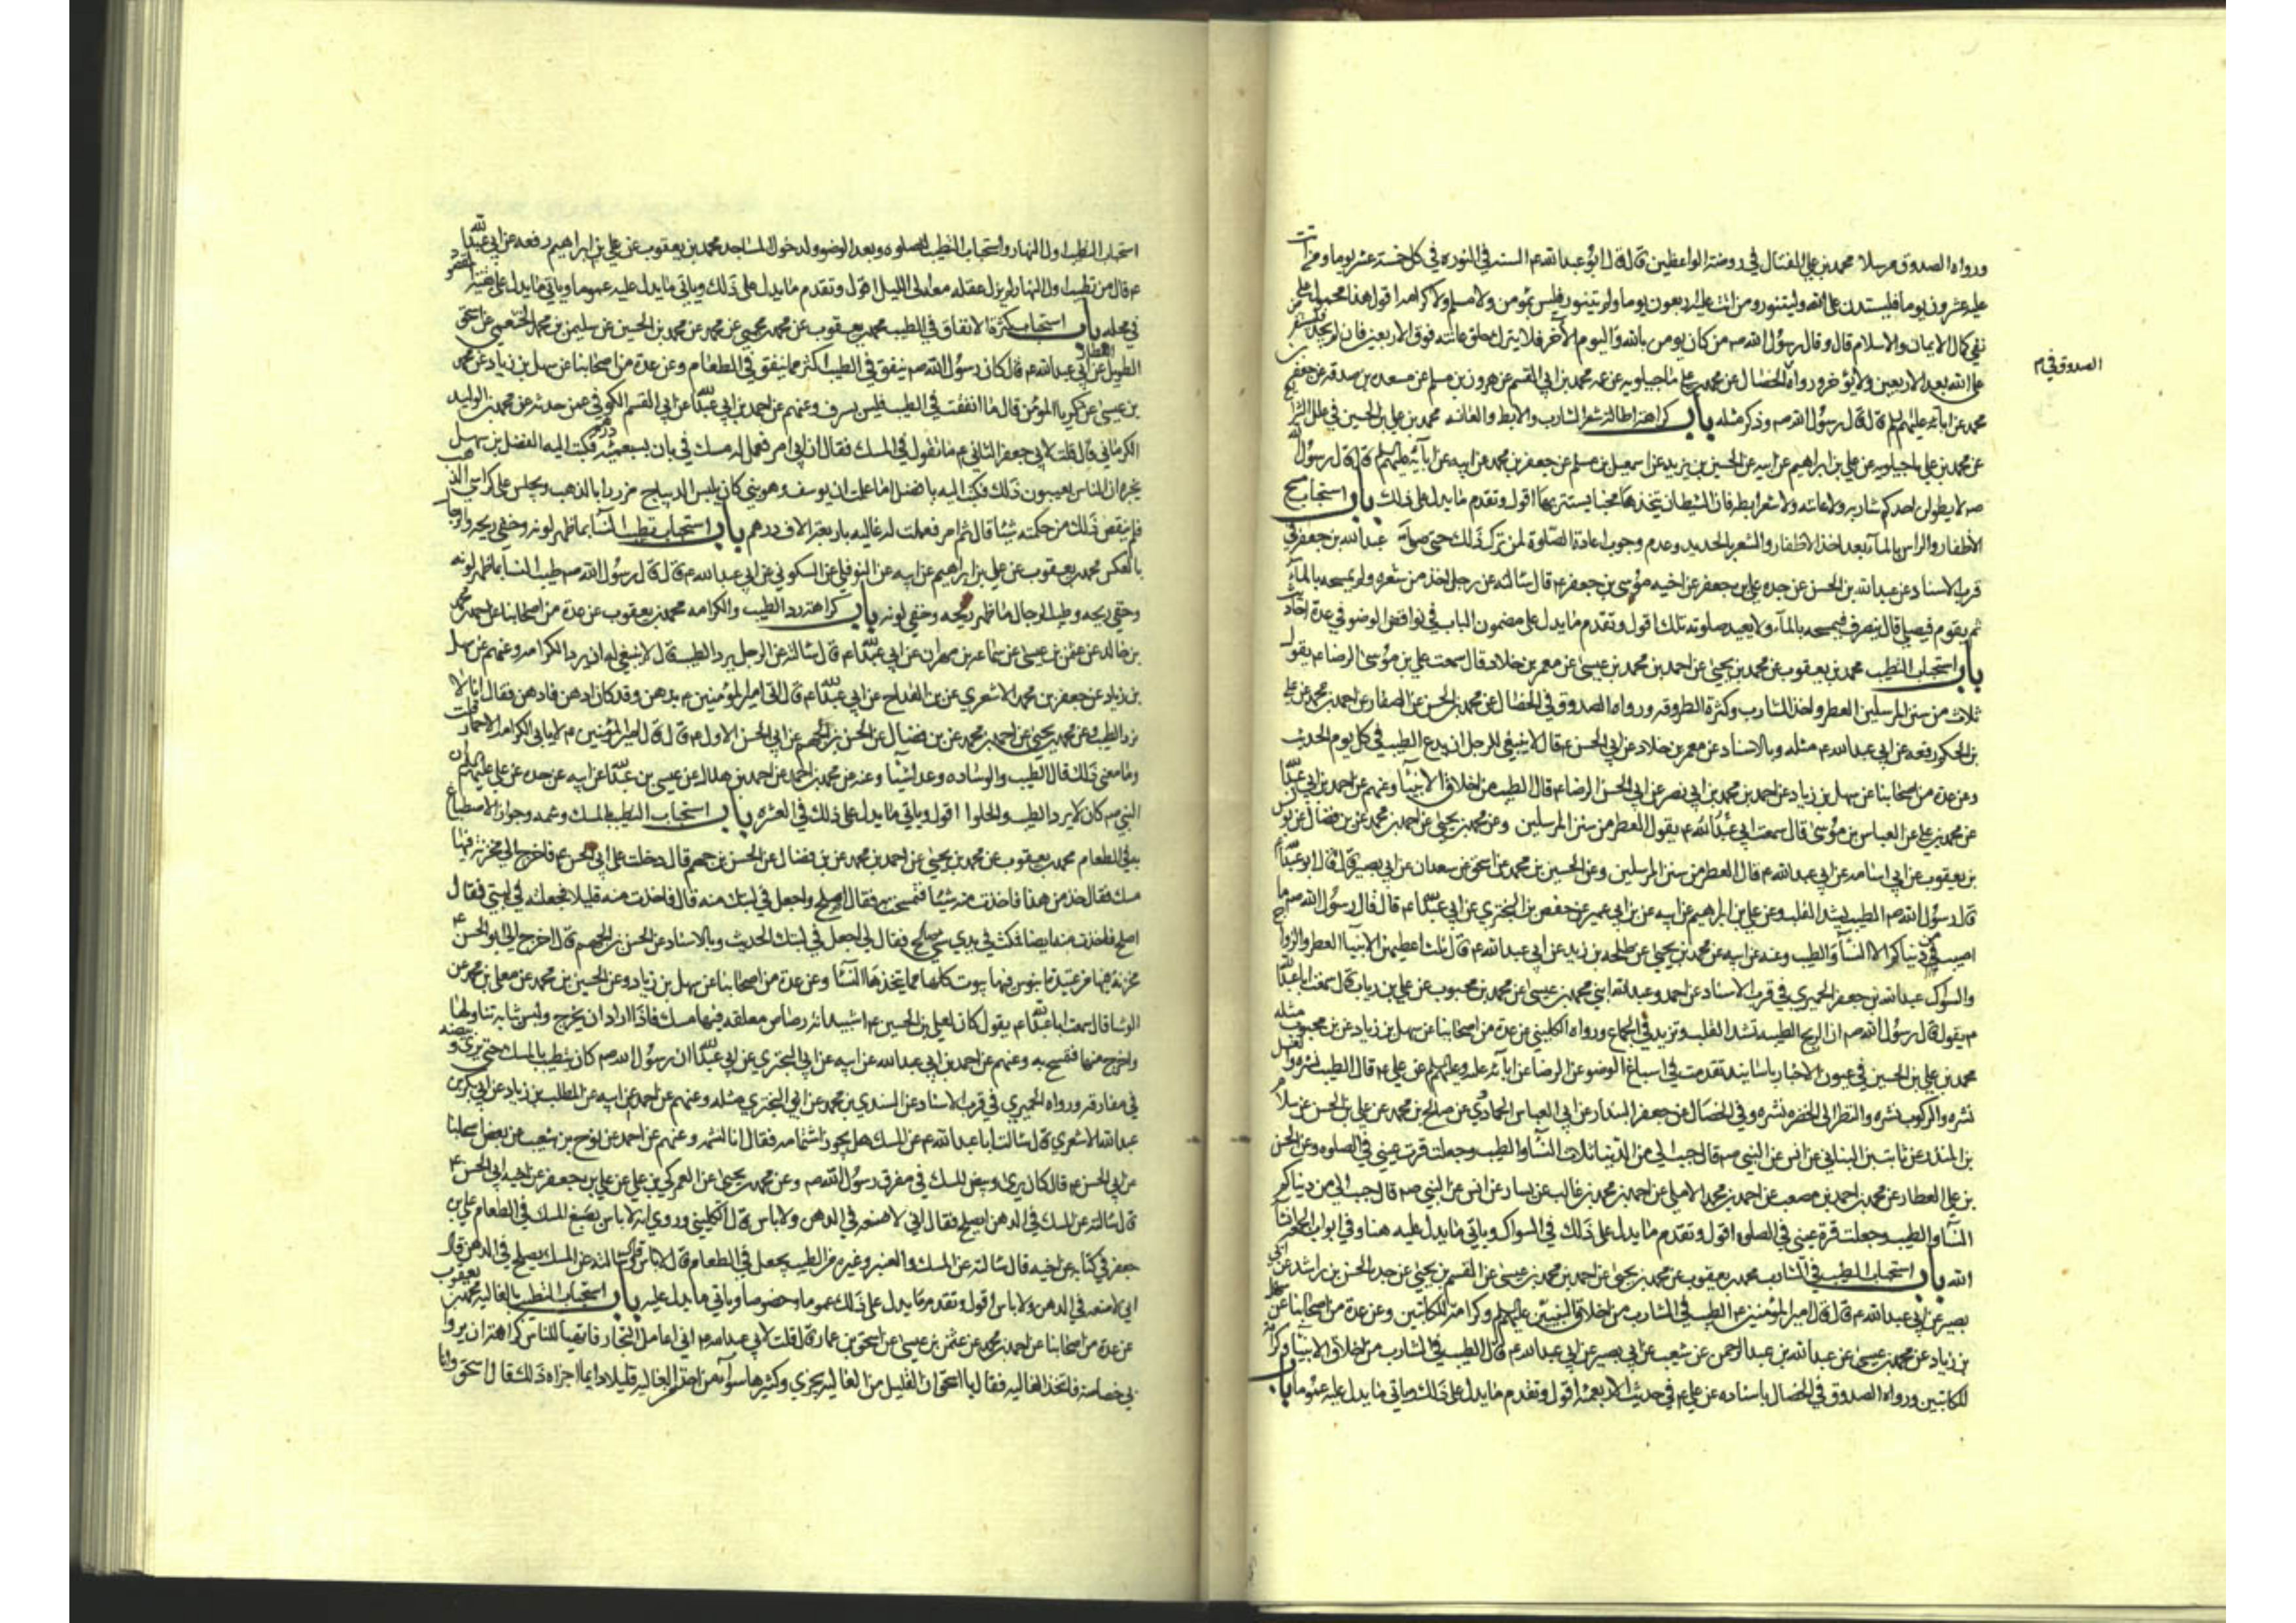 ورواه الصدوق مرسلا محمد بن علي الفتال في روضة الواعظين قال قال ابو عبد الله ع السنة في النورة في كل خمسة عشر يوما ومن اتت
عليه عشرون يوما فليستدن على الله وليتنور ومن اتت عليه اربعون يوما ولم يتنور فليس بمؤمن ولا مسلم ولا كرامة اقول هذا محمول على
نفي كمال الايمان والاسلام قال وقال رسول الله ص من كان يومن بالله واليوم الآخر فلا يترك حلق عانته فوق الاربعين فان لم يجد فليستقرض
على الله بعد الاربعين ولا يؤخر ورواه الخصال عن محمد بن علي ماجيلويه عن عمه محمد بن ابي القسم عن هرون بن مسلم عن مسعدة بن صدقه عن جعفر بن
الصدوق في م
محمد عن ابائه عليهم السلم قال قال رسول الله ص وذكر مثله باب كراهة اطالة شعر الشارب والابط والعانه محمد بن علي بن الحسين في علل الشرايع
عن محمد بن علي ماجيلويه عن علي بن ابراهيم عن ابيه عن الحسين بن يزيد عن اسمعيل بن مسلم عن جعفر بن محمد عن ابيه عن ابآئه عليهم السلم قال قال رسول الله
ص لا يطولن احدكم شاربه ولا عانته ولا شعر ابطه فان الشيطان يتخذها مخبا يستتر بها اقول وتقدم ما يدل على ذلك باب استحباب مسح
الأظفار والراس بالمآء بعد اخذ الأظفار والشعر بالحديد وعدم وجوب اعادة الصلوة لمن ترك ذلك حتى صلى عبد الله بن جعفر في
قرب الاسناد عن عبد الله بن الحسن عن جده علي بن جعفر عن اخيه موسى بن جعفر ع قال سالته عن رجل اخذ من شعره ولم يمسحه بالمآء
ثم يقوم فيصلي قال ينصرف فيمسحه بالمآء ولا يعيد صلوته تلك اقول وتقدم ما يدل على مضمون الباب في نواقض الوضو في عدة احاديث
باب استحباب التطيب محمد بن يعقوب عن محمد بن يحيى عن احمد بن محمد بن عيسى عن معمر بن خلاد قال سمعت علي بن موسى الرضا ع يقول
ثلاث من سنن المرسلين العطر واخذ الشارب وكثرة الطروقه ورواه الصدوق في الخصال عن محمد بن الحسن عن الصفار عن احمد بن محمد عن علي
بن الحكم رفعه عن ابي عبد الله ع مثله وبالاسناد عن معمر بن خلاد عن ابي الحسن ع قال لا ينبغي للرجل ان يدع الطيب في كل يوم الحديث
وعن عدة من اصحابنا عن سهل بن زياد عن احمد بن محمد بن ابي نصر عن ابي الحسن الرضا ع قال الطيب من اخلاق الانبيآء وعنهم عن احمد بن ابي عبد الله
عن محمد بن علي عن العباس بن موسى قال سمعت ابي عبد الله ع يقول العطر من سنن المرسلين وعن محمد بن يحيى عن احمد بن محمد عن بن فضال عن يونس
بن يعقوب عن ابي اسامه عن ابي عبد الله ع قال العطر من سنن المرسلين وعن الحسين بن محمد عن احمد بن اسحق عن سعدان عن ابي بصير قال قال ابو عبد الله ع
قال رسول الله ص الطيب يشد القلب وعن علي بن ابراهيم عن ابيه عن بن ابي عمير عن حفص بن البختري عن ابي عبد الله ع قال قال رسول الله ص ما
اصيب من دنياكم الا النسآء والطيب وعنه عن ابيه عن محمد بن يحيى عن طلحه بن زيد عن ابي عبد الله ع قال ثلث اعطيهن الانبيآء العطر والازواج
والسواك عبد الله بن جعفر الحميري في قرب الاسناد عن احمد وعبد الله ابني محمد بن عيسى عن محمد بن محبوب عن علي بن رياب قال سمعت ابا عبد الله
ع يقول قال رسول الله ص ان الريح الطيبه تشد القلب وتزيد في الجماع ورواه الكليني عن عدة من اصحابنا عن سهل بن زياد عن بن محبوب مثله
محمد بن علي بن الحسين في عيون الاخبار باسانيد تقدمت في اسباغ الوضو عن الرضا عن ابآئه عليه وعليهم السلم عن علي ع قال الطيب نشره والغسل
نشره والركوب نشره والنظر الى الخضره نشره وفي الخصال عن جعفر البندار عن ابي العباس الحمادي عن صالح بن محمد عن علي بن الحسن عن سلام
بن المنذر عن ثابت بن البناني عن انس عن النبي ص قال حبب الي من الدنيا ثلاث النسآء والطيب وجعلت قرة عيني في الصلوه وعن الحسن
بن علي العطار عن محمد بن احمد بن مصعب عن احمد بن محمد الاملي عن احمد بن محمد بن غالب عن يسار عن انس عن النبي ص قال حبب الي من دنياكم
النسآء والطيب وجعلت قرة عيني في الصلوه اقول وتقدم ما يدل على ذلك في السواك وياتي ما يدل عليه هنا وفي ابواب الجمعة انشآء
الله باب استحباب الطيب في الشارب محمد بن يعقوب عن محمد بن يحيى عن احمد بن محمد بن عيسى عن القسم بن يحيى عن جده الحسن بن راشد عن ابي
بصير عن ابي عبد الله ع قال قال امير المؤمنين ع الطيب في الشارب من اخلاق النبيين عليهم السلم وكرامة للكاتبين وعن عدة من اصحابنا عن سهل
بن زياد عن محمد بن عيسى عن عبد الله بن عبد الرحمن عن شعيب عن ابي بصير عن ابي عبد الله ع قال الطيب في الشارب من اخلاق الانبيآء وكرامة
للكاتبين ورواه الصدوق في الخصال باسناده عن علي ع في حديث الاربعمئه اقول وتقدم ما يدل على ذلك وياتي ما يدل عليه عموما باب
استحباب التطيب اول النهار واستحباب التطيب للصلوه وبعد الوضو ولدخول المساجد محمد بن يعقوب عن علي بن ابراهيم رفعه عن ابي عبد الله
ع قال من تطيب اول النهار لم يزل عقله معه الى الليل اقول وتقدم ما يدل على ذلك وياتي ما يدل عليه عموما وياتي ما يدل على بقية المقصود
في محله باب استحباب كثرة الانفاق في الطيب محمد بن يعقوب عن محمد بن يحيى عن محمد بن الحسين عن سليمن بن محمد الخثعمي عن اسحق
الطويل العطار عن ابي عبد الله ع قال كان رسول الله ص ينفق في الطيب اكثر مما ينفق في الطعام وعن عدة من اصحابنا عن سهل بن زياد عن محمد
بن عيسى عن زكريا المؤمن قال ما انفقت في الطيب فليس بسرف وعنهم عن احمد بن ابي عبد الله عن ابي القسم الكوفي عمن حدثه عن محمد بن الوليد
الكرماني قال قلت لابي جعفر الثاني ع ما تقول في المسك فقال ان ابي امر فعمل له مسك في بان بسبعمئة درهم فكتب اليه الفضل بن سهل
يخبره ان الناس يعيبون ذلك فكتب اليه يا فضل اما علمت ان يوسف وهو نبي كان يلبس الديباج مزررا بالذهب ويجلس على كراسي الذهب
فلم ينقص ذلك من حكمته شيئا قال ثم امر فعملت له غاليه باربعة الاف درهم باب استحباب تطيب النسآء بما ظهر لونه وخفي ريحه والرجال
بالعكس محمد بن يعقوب عن علي بن ابراهيم عن ابيه عن النوفلي عن السكوني عن ابي عبد الله ع قال قال رسول الله ص طيب النسآء ما ظهر لونه
وخفي ريحه وطيب الرجال ما ظهر ريحه وخفي لونه باب كراهة رد الطيب والكرامه محمد بن يعقوب عن عدة من اصحابنا عن احمد بن محمد
بن خالد عن عثمن بن عيسى عن سماعه بن مهران عن ابي عبد الله ع قال سالته عن الرجل يرد الطيب قال لا ينبغي له ان يرد الكرامه وعنهم عن سهل
بن زياد عن جعفر بن محمد الاشعري عن بن القداح عن ابي عبد الله ع قال اتي امير المؤمنين ع بدهن وقد كان ادهن فادهن فقال انا لا
نرد الطيب وعن محمد بن يحيى عن احمد بن محمد عن بن فضال عن الحسن بن الجهم عن ابي الحسن الاول ع قال قال امير المؤمنين ع لا يابى الكرامه الا حمار قلت
وما معنى ذلك قال الطيب والوساده وعد اشيآء وعنه عن محمد بن احمد عن احمد بن هلال عن عيسى بن عبد الله عن ابيه عن جده عن علي عليهم السلم ان
النبي ص كان لا يرد الطيب والحلوا اقول وياتي ما يدل على ذلك في العشره باب استحباب التطيب بالمسك وشمه وجواز الاصطباغ
به في الطعام محمد بن يعقوب عن محمد بن يحيى عن احمد بن محمد عن بن فضال عن الحسن بن جهم قال دخلت على ابي الحسن ع فاخرج الي مخزنة فيها
مسك فقال خذ من هذا فاخذت منه شيئا فتمسحت به فقال اصلح واجعل في لبتك منه قال فاخذت منه قليلا فجعلته في لبتي فقال
اصلح فاخذت منه ايضا فمكث في يدي شي صالح فقال لي اجعل في لبتك الحديث وبالاسناد عن الحسن بن الجهم قال اخرج الي ابو الحسن ع
مخزنة فيها مسك من عتيدة ابنوس فيها بيوت كلها مما يتخذها النسآء وعن عدة من اصحابنا عن سهل بن زياد وعن الحسين بن محمد عن معلى بن محمد عن
الوشا قال سمعت ابا عبد الله ع يقول كان لعلي بن الحسين ع اشبيدانة رصاص معلقه فيها مسك فاذا اراد ان يخرج ولبس ثيابه تناولها
واخرج منها فتمسح به وعنهم عن احمد بن ابي عبد الله عن ابيه عن ابي البختري عن ابي عبد الله ان رسول الله ص كان يتطيب بالمسك حتى يرى وبيصه
في مفارقه ورواه الحميري في قرب الاسناد عن السندي بن محمد عن ابي البختري مثله وعنهم عن احمد عن ابيه عن المطلب بن زياد عن ابي بكر بن
عبد الله الاشعري قال سالت ابا عبد الله ع عن المسك هل يجوز اشتمامه فقال انا لنشمه وعنهم عن احمد عن نوح بن شعيب عن بعض اصحابنا
عن ابي الحسن ع قال كان يرى وبيص المسك في مفرق رسول الله ص وعن محمد بن يحيى عن العمركي بن علي عن علي بن جعفر عن اخيه ابي الحسن ع
قال سالته عن المسك في الدهن ايصلح فقال اني لاصنعه في الدهن ولا باس قال الكليني وروي انه لا باس بصبغ المسك في الطعام علي بن
جعفر في كتابه عن اخيه قال سالته عن المسك والعنبر وغيره من الطيب يجعل في الطعام قال لا باس قال وسالته عن المسك يصلح في الدهن قال
اني لاصنعه في الدهن ولا باس اقول وتقدم ما يدل على ذلك عموما وخصوصا وياتي ما يدل عليه باب استحباب التطيب بالغاليه محمد بن يعقوب
عن عدة من اصحابنا عن احمد بن محمد عن عثمن بن عيسى عن اسحق بن عمار قال قلت لابي عبد الله ع اني اعامل التجار فاتهيا للناس كراهة ان يروا
بي خصاصة فاتخذ الغاليه فقال يا اسحق ان القليل من الغاليه يجزي وكثيرها سوآء من اتخذ من الغاليه قليلا دائما اجزاه ذلك قال اسحق وانا